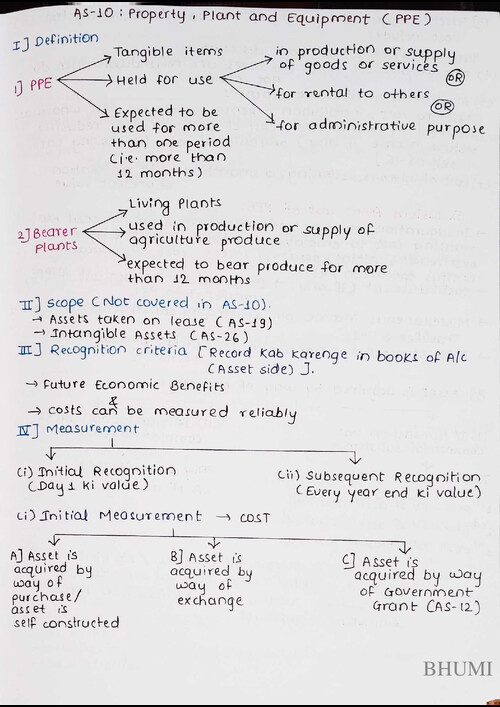 AS-10 : Property, Plant and Equipment (PPE)
I] Definition
1] PPE
Tangible items
Held for use
in production or supply
of goods or services
OR
for rental to others
OR
for administrative purpose
Expected to be
used for more
than one period
(i.e. more than
12 months)
2] Bearer
plants
Living Plants
used in production or supply of
agriculture produce
expected to bear produce for more
than 12 months
II] Scope (Not covered in AS-10).
→ Assets taken on lease (AS-19)
→ Intangible Assets (AS-26)
III] Recognition criteria [Record Kab Karenge in books of A/c
(Asset side) ].
→ Future Economic Benefits
&
→ costs can be measured reliably
IV] Measurement
(i) Initial Recognition
(Day 1 Ki value)
(ii) Subsequent Recognition
(Every year end Ki value)
(i) Initial Measurement → COST
A] Asset is
acquired by
way of
purchase/
asset is
self constructed
B] Asset is
acquired by
way of
exchange
C] Asset is
acquired by way
of Government
Grant (AS-12)
BHUMI